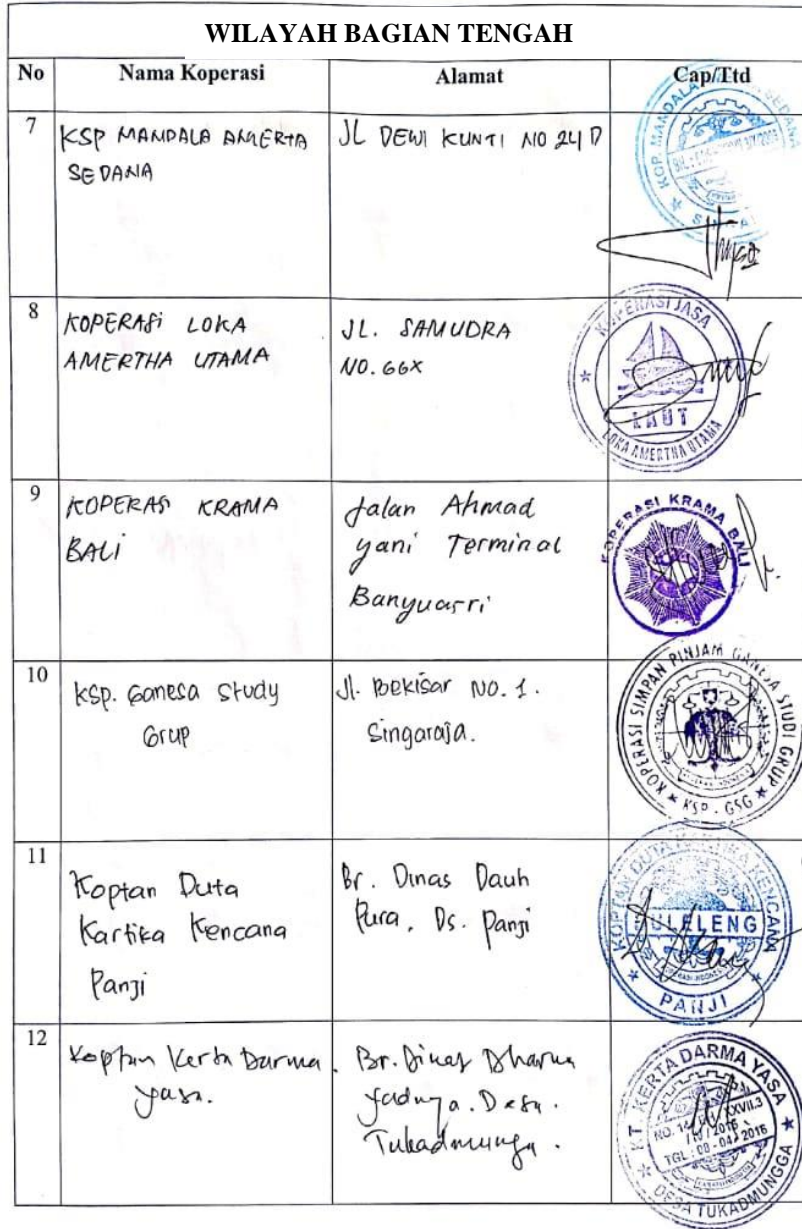 WILAYAH BAGIAN TENGAH
No Nama Koperasi Alamat Cap/Ttd
7 KSP MANDALA AMERTA SEDANA JL DEWI KUNTI NO 24 D
KOP. MANDALA SEDANA
8 KOPERASI LOKA AMERTHA UTAMA JL. SAMUDRA NO. 66X
KOPERASI JASA
LAUT
LOKA AMERTHA UTAMA
9 KOPERASI KRAMA BALI Jalan Ahmad yani Terminal Banyuasri
KOPERASI KRAMA BALI
10 KSP. Ganesa Study Grup Jl. Bekisar NO. 1. Singaraja.
KOPERASI SIMPAN PINJAM GANESA STUDI GRUP
KSP - GSG
11 Koptan Duta Kartika Kencana Panji Br. Dinas Dauh Pura, Ds. Panji
KOPTAN DUTA KARTIKA KENCANA
BULELENG
PANJI
12 Koptan Kerta Darma yasa. Br. Dinas Dharma yadnya. Desa. Tukadmungga.
KT KERTA DARMA YASA
TGL : 08 - 04 - 2016
DESA TUKADMUNGGA